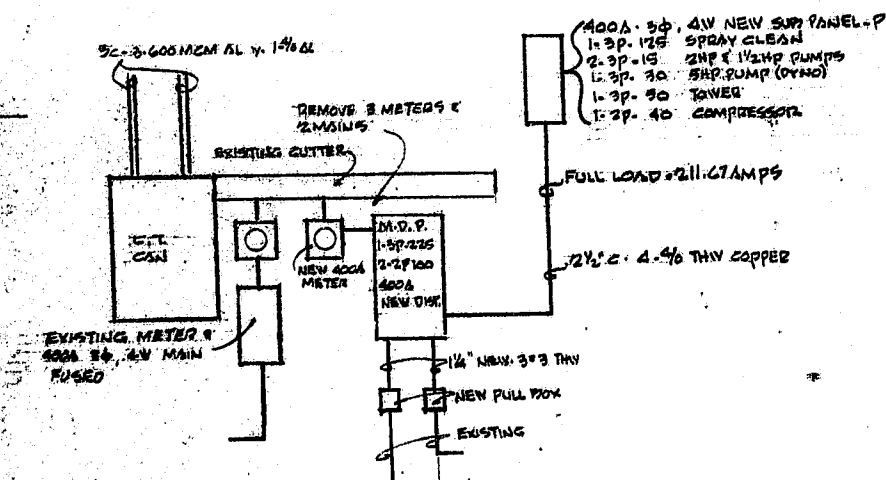 400A. 3Ø, 4W NEW SUB PANEL-P
1- 3P- 125 SPRAY CLEAN
2- 3P-15 2HP & 1½HP PUMPS
1- 3P- 30 5HP PUMP (DYNO)
1- 3P- 50 TOWER
1- 3P- 40 COMPRESSOR
3C-3-600 MCM AL 1-4/0 AL
REMOVE 3 METERS &
2 MAINS
EXISTING GUTTER
FULL LOAD = 211.67 AMPS
C.T.
CAN
M.D.P.
1-3P-225
2-2P100
400A
NEW DIST.
NEW 400A
METER
2½" C. 4-4/0 THW COPPER
EXISTING METER &
400A 3Ø, 4W MAIN
FUSED
1¼" NEW. 3#3 THW
NEW PULL BOX
EXISTING